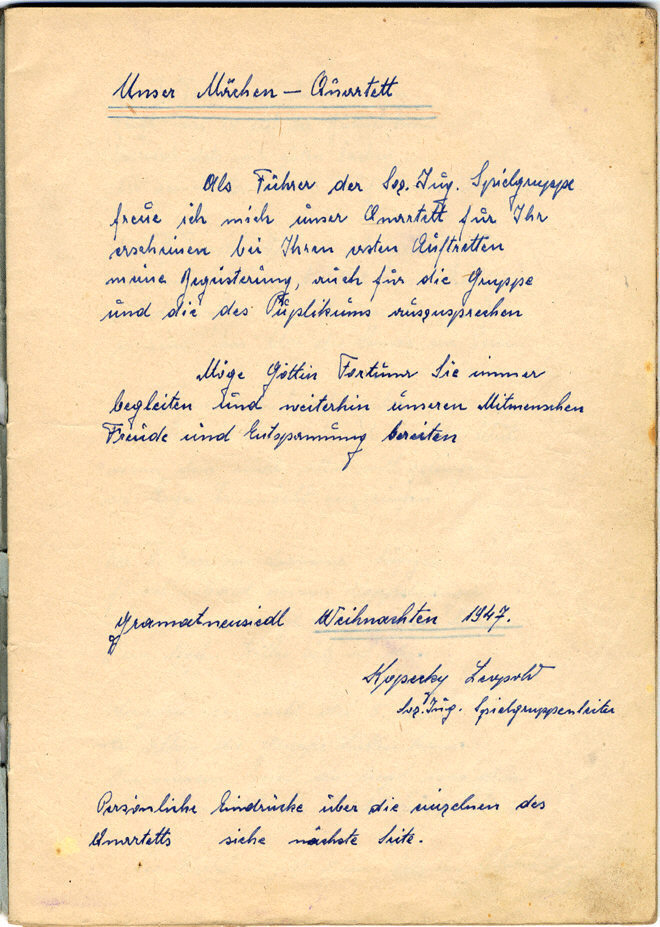 Unser Mächen – Quartett
Als Führer der Soz. Jug. Spielgruppe
freue ich mich unser Quartett für Ihr
erscheinen bei Ihren ersten Auftretten
meine Begüsterung, auch für die Gruppe
und die des Püplikums auszusprechen
Möge Göttin Fortuna Sie immer
begleiten und weiterhin unseren Mitmenschen
Freude und Entspannung bereiten
Gramatneusiedl Weihnachten 1947.
Koperky Leopold
Soz. Jug. Spielgruppenleiter
Persönliche Eindrücke über die einzelnen des
Quartetts siehe nächste Seite.